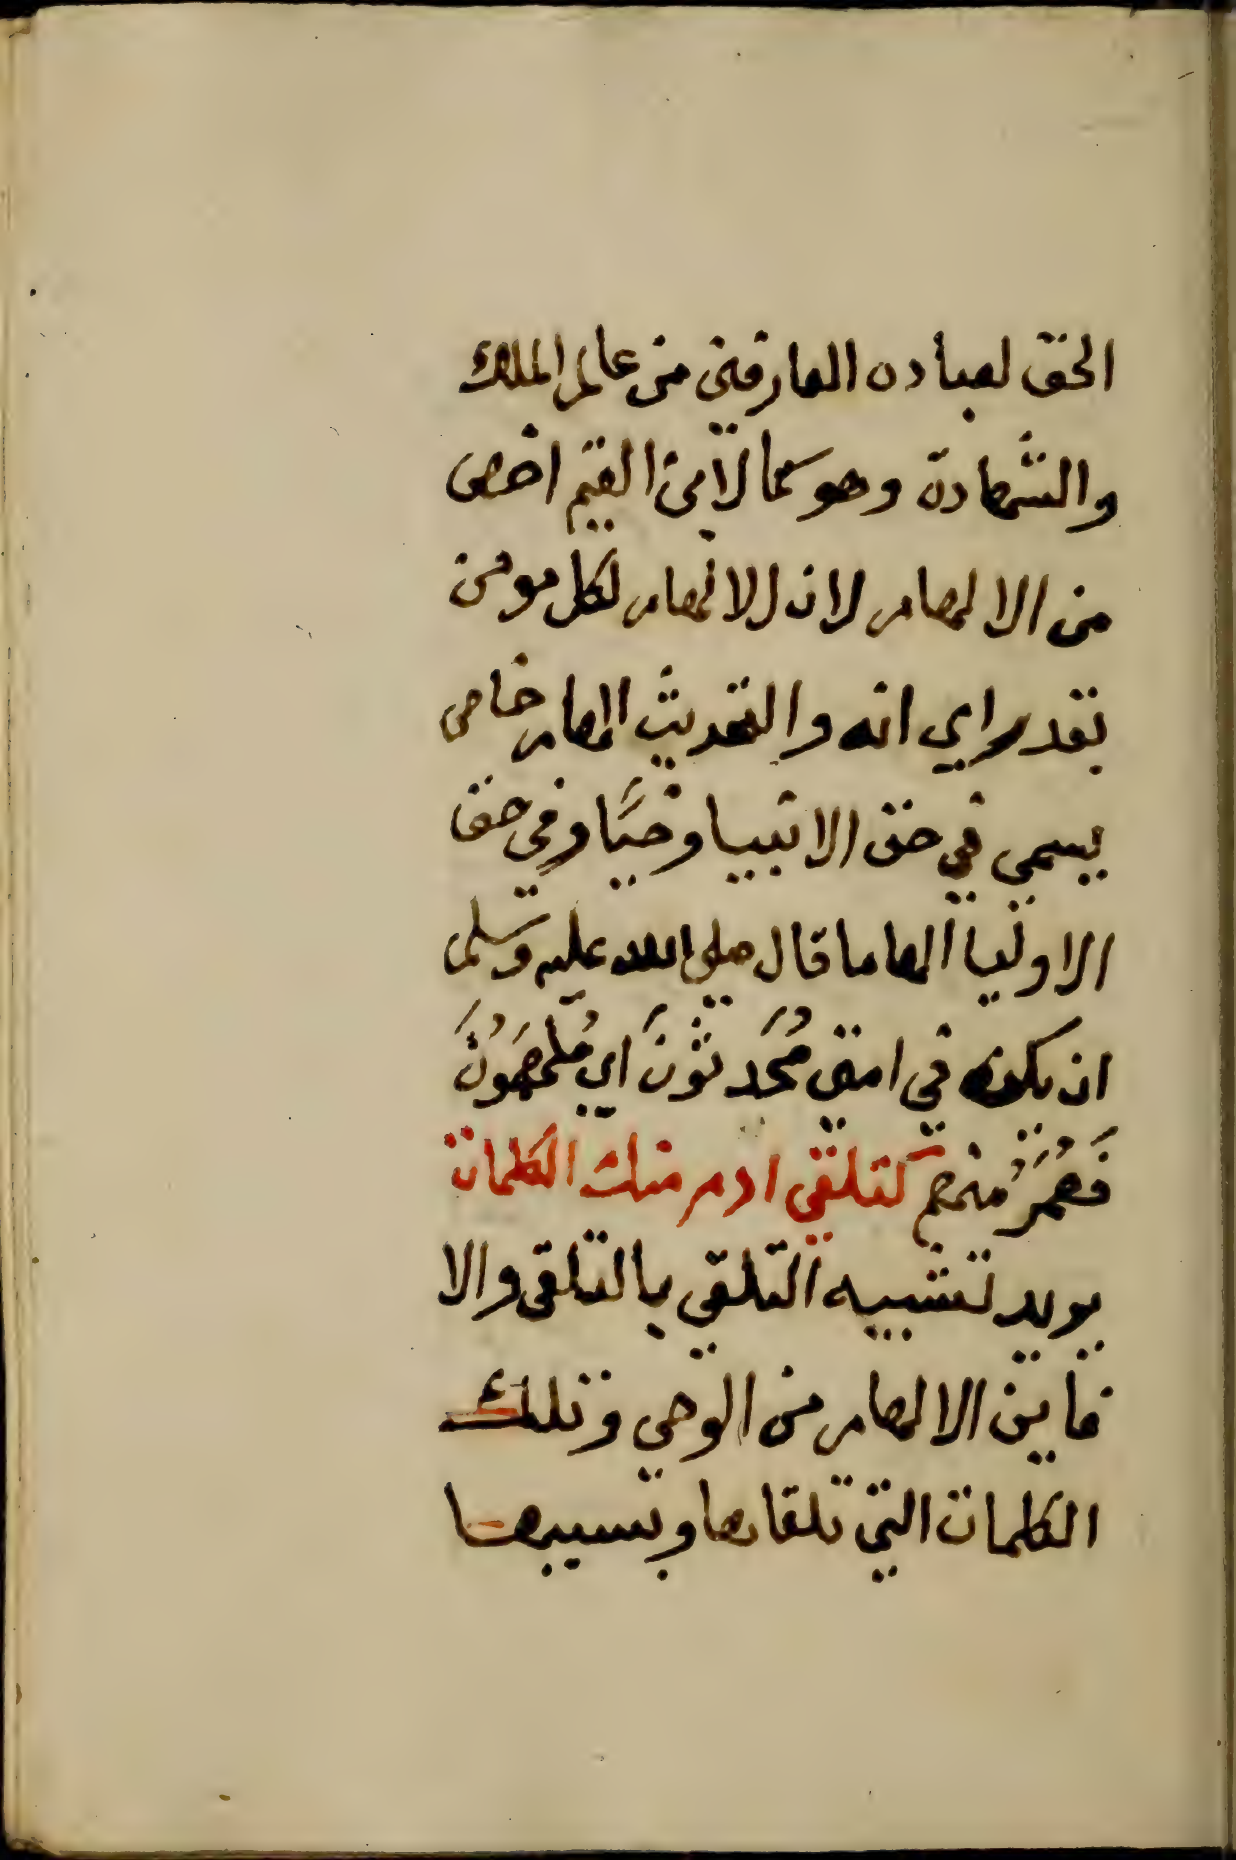 الحق لعباده العارفين من عالم الملك
والشهادة وهو كما لابن القيم اخص
من الالهام لان الالهام لكل مومن
بقدر اي انه والتحديث الهام خاص
يسمي في حق الانبيا وحيًا وفي حق
الاوليا الهاما قال صلي الله عليه وسلم
ان يكونه في امتي مُحَدثُونَ اي مُلْهَمُونَ
فَعُمَرُ منهم كتلقي ادم منك الكلمات
يريد تشبيه التلقي بالتلقي والا
فاين الالهام من الوحي وتلك
الكلمات التي تلقاها وبسببها